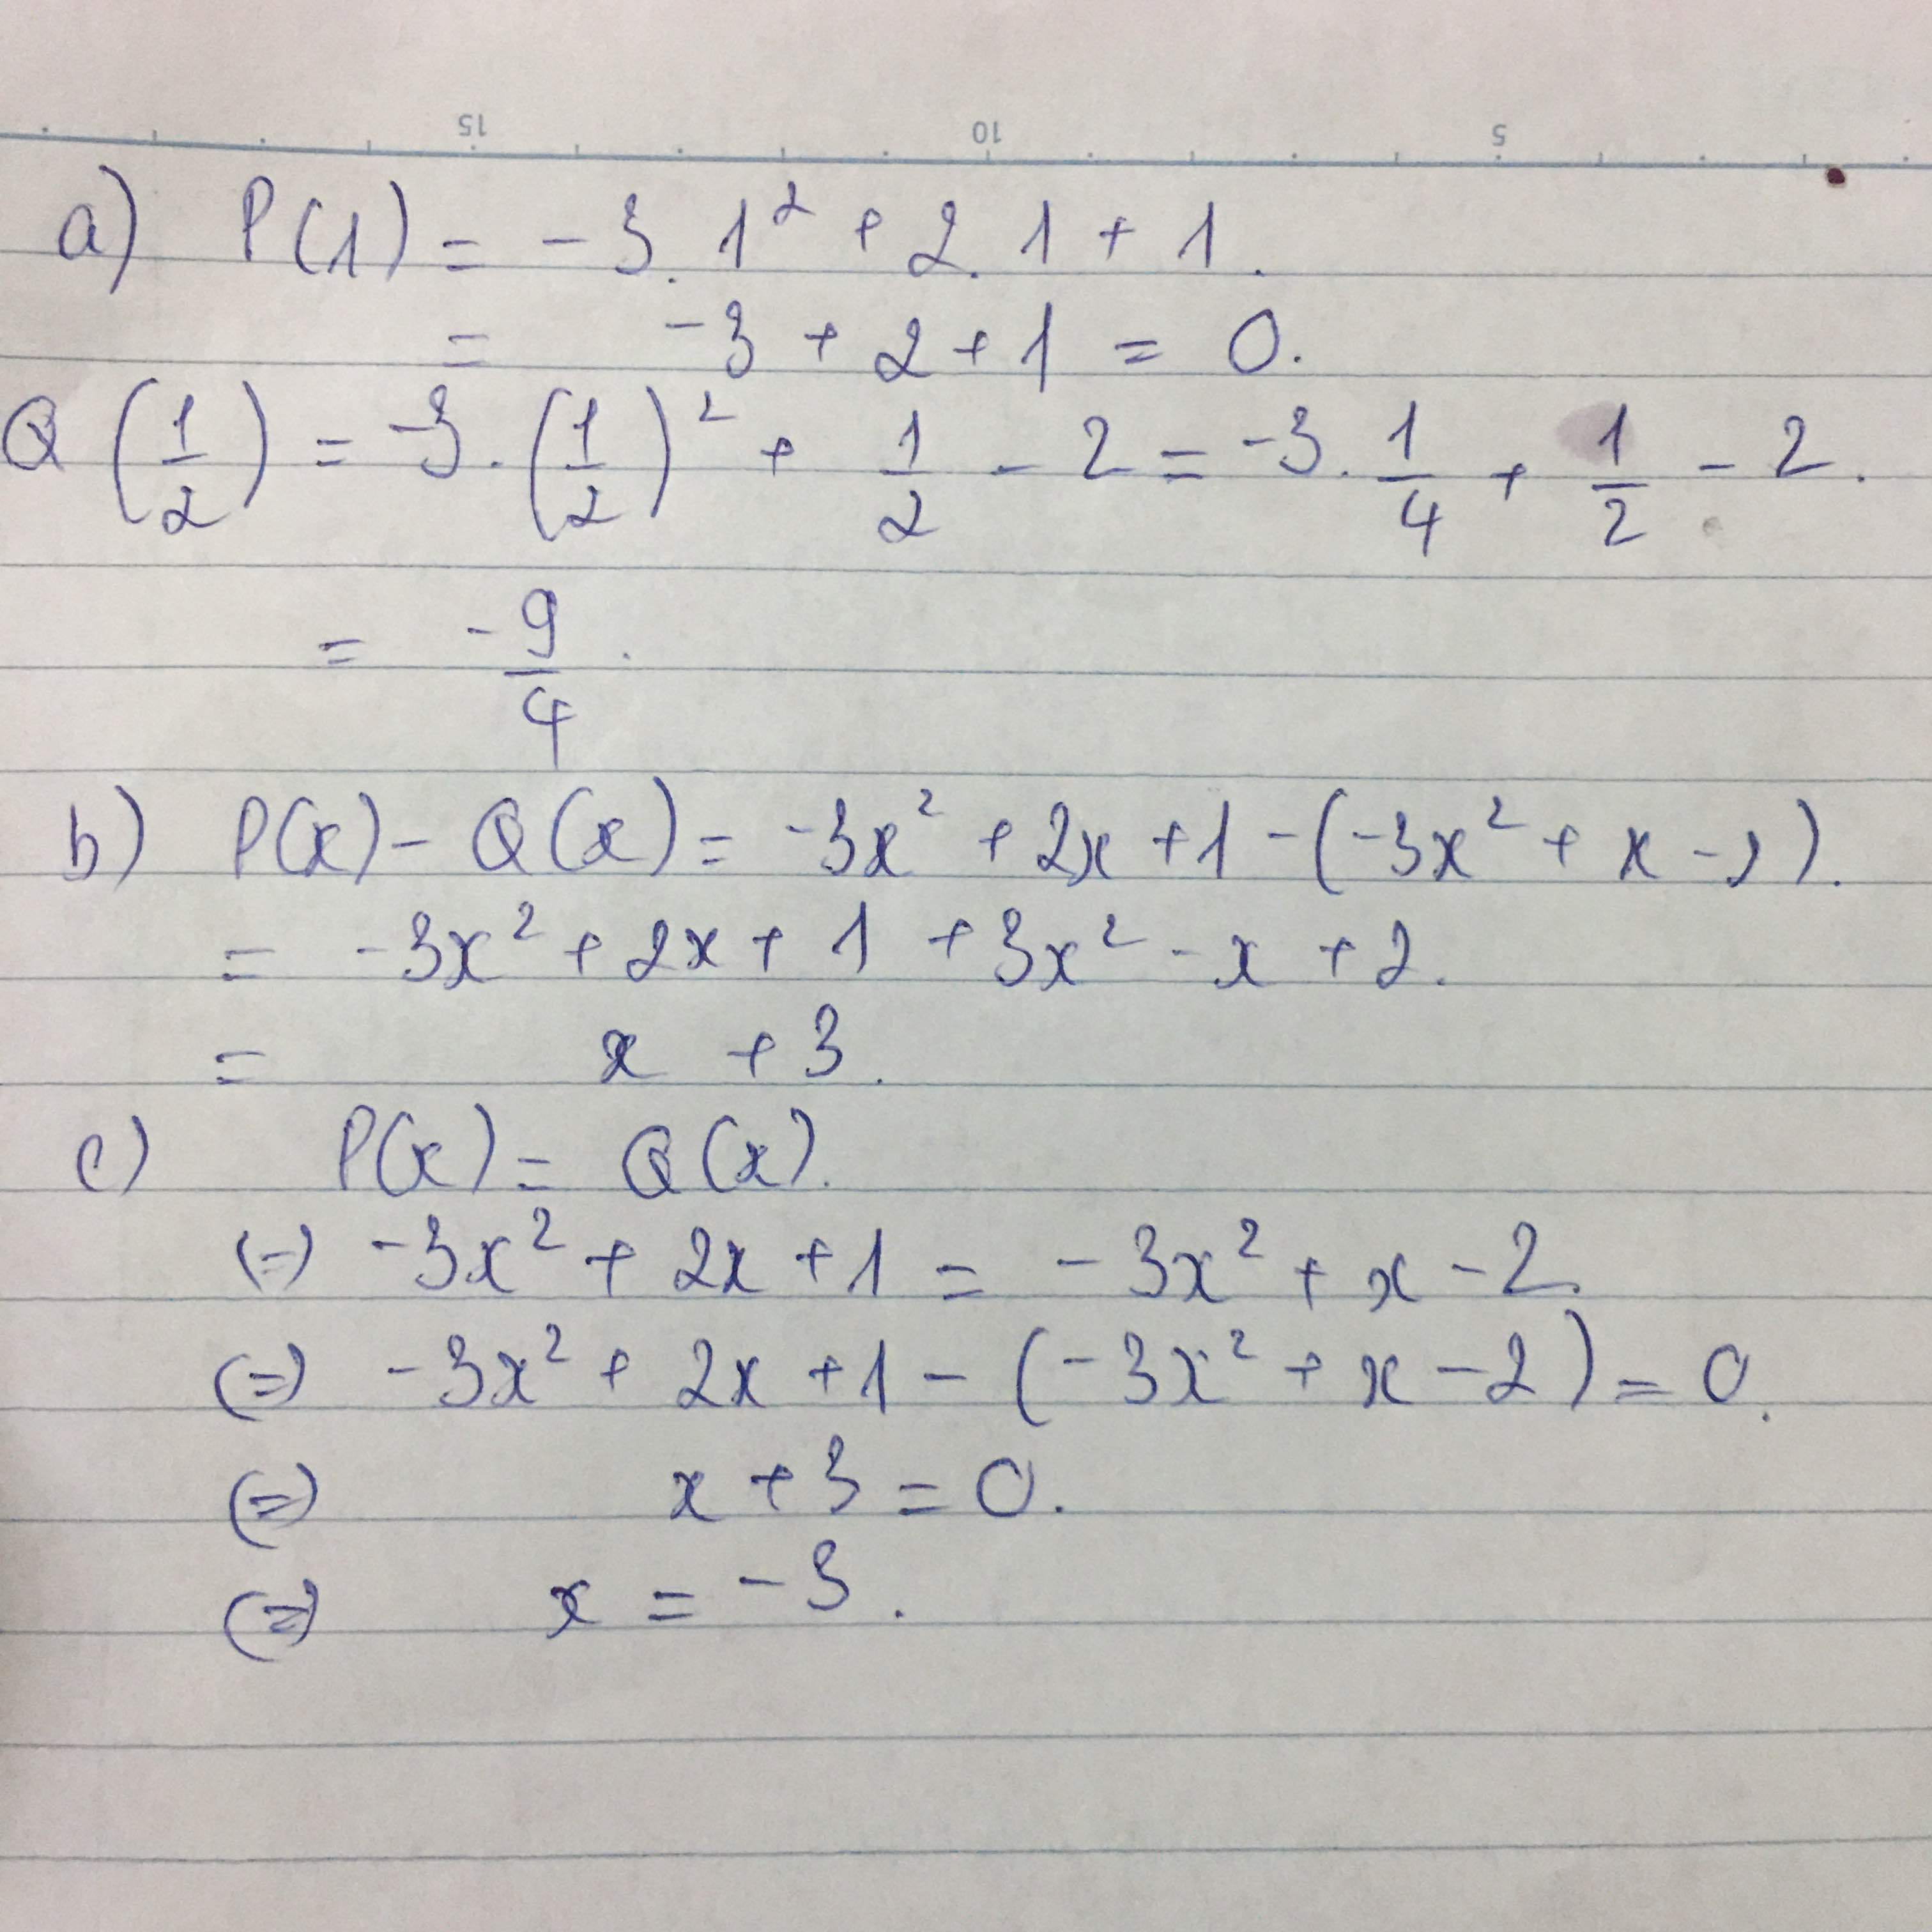 15 10 5
a) P(1) = -3.1² + 2.1 + 1.
= -3 + 2 + 1 = 0.
Q(1/2) = -3.(1/2)² + 1/2 - 2 = -3.1/4 + 1/2 - 2.
= -9/4.
b) P(x) - Q(x) = -3x² + 2x + 1 - (-3x² + x - 2).
= -3x² + 2x + 1 + 3x² - x + 2.
= x + 3.
c) P(x) = Q(x).
(=) -3x² + 2x + 1 = -3x² + x - 2.
(=) -3x² + 2x + 1 - (-3x² + x - 2) = 0.
(=) x + 3 = 0.
(=) x = -3.